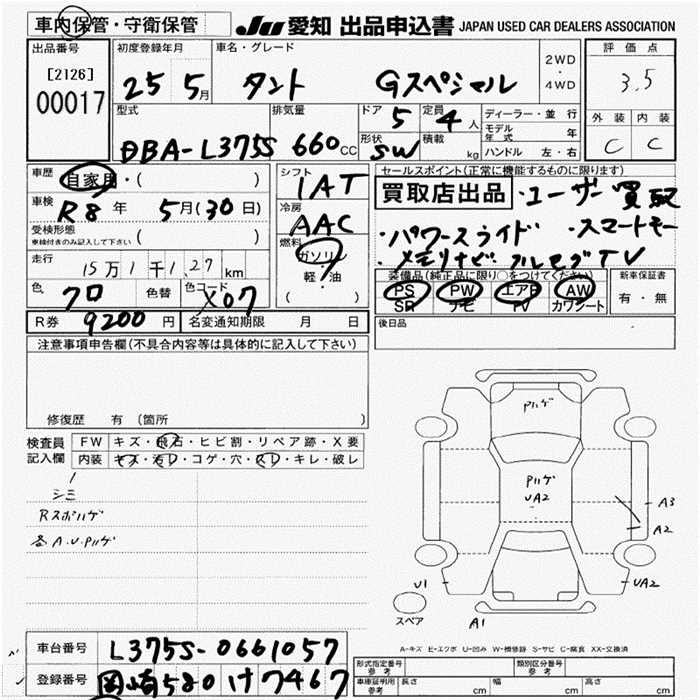 車内保管・守衛保管
JU 愛知 出品申込書 JAPAN USED CAR DEALERS ASSOCIATION
出品番号
[2126]
00017
初度登録年月
25 5月
車名・グレード
タント Gスペシャル
2WD
・
4WD
評価点
3.5
外装 内装
C C
型式
DBA-L375S
排気量
660 CC
ドア
5
定員
4人
形状
SW
積載
kg
ディーラー・並行
モデル年式 年
ハンドル 左・右
車歴
自家用・( )
車検
R8年 5月(30日)
受検形態
車検付きのみ記入して下さい ( )
走行
15万1千1,27 km
色
クロ
色替
色コード
X07
R券 9200円
名変通知期限 月 日
シフト
IAT
冷房
AAC
燃料
ガソリン
軽・油
( )
セールスポイント(正常に機能するものに限ります)
買取店出品 ・ユーザー買取
・パワースライド ・スマートキー
・メモリナビ フルセグTV
装備品(純正品に限り○をつけてください)
PS PW エアB AW
SR ナビ TV カワシート
新車保証書
有・無
後日品
注意事項申告欄(不具合内容等は具体的に記入して下さい)
修復歴 有 (箇所 )
検査員
記入欄
FW キズ・飛石・ヒビ割・リペア跡・X要
内装 キズ・汚レ・コゲ・穴・スレ・キレ・破レ
シミ
Rスポハゲ
各A.U.Pハゲ
Pハゲ
Pハゲ
UA2
A3
A2
U1
UA2
A1
スペア
A-キズ E-エクボ U-凹み W-補修跡 S-サビ C-腐食 XX-交換済
車台番号 L375S-0661057
登録番号 岡崎580 け7467
形式指定番号
参考
類別区分番号
参考
車庫証明用
参考
長さ cm 幅 cm 高さ cm